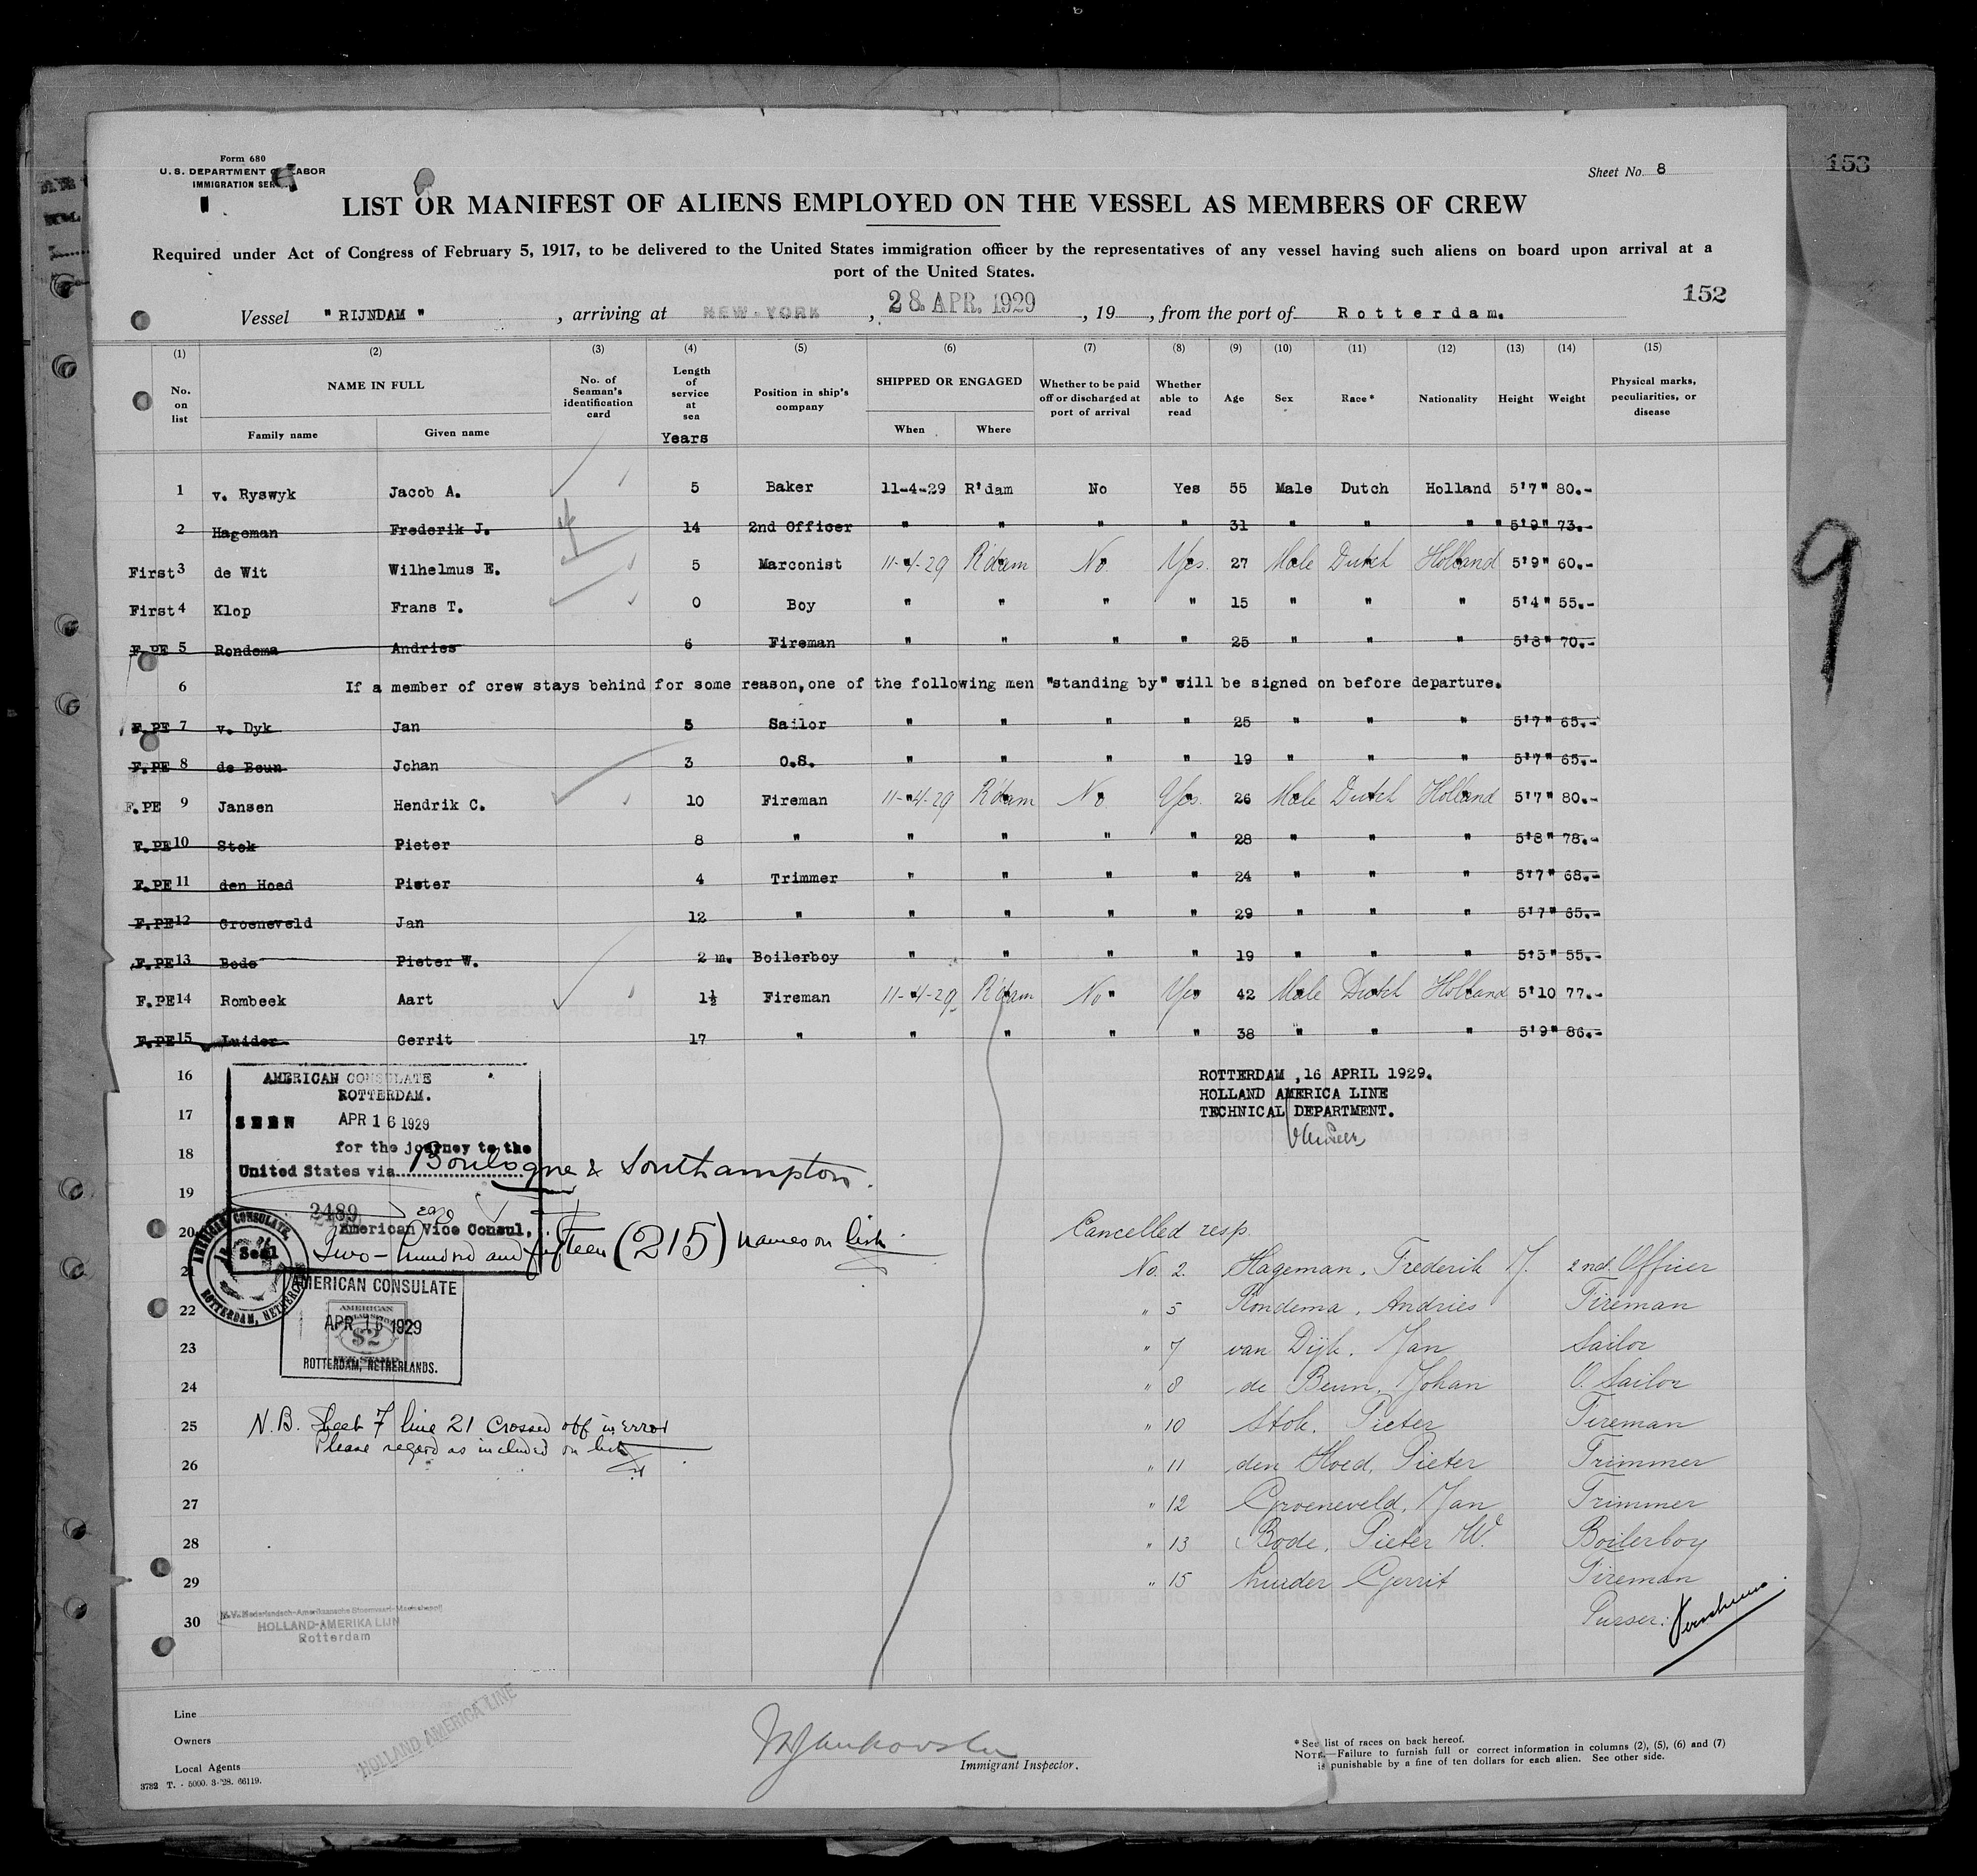 153
Form 680
U. S. DEPARTMENT OF LABOR
IMMIGRATION SERVICE
Sheet No. 8
LIST OR MANIFEST OF ALIENS EMPLOYED ON THE VESSEL AS MEMBERS OF CREW
Required under Act of Congress of February 5, 1917, to be delivered to the United States immigration officer by the representatives of any vessel having such aliens on board upon arrival at a
port of the United States.
152
Vessel "RIJNDAM", arriving at NEW-YORK, 28. APR. 1929, 19 , from the port of Rotterdam.
(1) (2) (3) (4) (5) (6) (7) (8) (9) (10) (11) (12) (13) (14) (15)
No. on list NAME IN FULL Family name Given name No. of Seaman's identification card Length of service at sea Years Position in ship's company SHIPPED OR ENGAGED When Where Whether to be paid off or discharged at port of arrival Whether able to read Age Sex Race* Nationality Height Weight Physical marks, peculiarities, or disease
1 v. Ryswyk Jacob A. 5 Baker 11-4-29 R'dam No Yes 55 Male Dutch Holland 5'7" 80.-
2 Hageman Frederik J. 14 2nd Officer " " " " 31 " " " " 5'9" 73.-
First 3 de Wit Wilhelmus E. 5 Marconist 11-4-29 R'dam No. Yes. 27 Male Dutch Holland 5'9" 60.-
First 4 Klop Frans T. 0 Boy " " " " 15 " " " 5'4" 55.-
F.PE 5 Rondema Andries 6 Fireman " " " " 25 " " " 5'8" 70.-
6 If a member of crew stays behind for some reason,one of the following men "standing by" will be signed on before departure.
F.PE 7 v. Dyk Jan 5 Sailor " " " " 25 " " " 5'7" 65.-
F.PE 8 de Beun Johan 3 O.S. " " " " 19 " " " 5'7" 65.-
F.PE 9 Jansen Hendrik C. 10 Fireman 11-4-29 R'dam No Yes. 26 Male Dutch Holland 5'7" 80.-
F.PE 10 Stok Pieter 8 " " " " " 28 " " " 5'8" 78.-
F.PE 11 den Hoed Pieter 4 Trimmer " " " " 24 " " " 5'7" 68.-
F.PE 12 Groeneveld Jan 12 " " " " " 29 " " " 5'7" 65.-
F.PE 13 Bode Pieter W. 2 m. Boilerboy " " " " 19 " " " 5'5" 55.-
F.PE 14 Rombeek Aart 1½ Fireman 11-4-29 R'dam No" Yes 42 Male Dutch Holland 5'10 77.-
F.PE 15 Luider Gerrit 17 " " " " " 38 " " " 5'9" 86.-
9
16
17
18
19
20
21
22
23
24
25
26
27
28
29
30
AMERICAN CONSULATE
ROTTERDAM.
SEEN APR 16 1929
for the journey to the
United States via Boulogne & Southampton.
2489
American Vice Consul,
Seal
Two-hundred and fifteen (215) names on list
AMERICAN CONSULATE, ROTTERDAM, NETHERLANDS
AMERICAN CONSULATE
AMERICAN
$2
FEE STAMP
APR 16 1929
ROTTERDAM, NETHERLANDS.
N.B. Sheet 7 line 21 Crossed off in error
Please regard as included on list
N.V. Nederlandsch-Amerikaansche Stoomvaart-Maatschappij
HOLLAND-AMERIKA LIJN
Rotterdam
ROTTERDAM ,16 APRIL 1929.
HOLLAND AMERICA LINE
TECHNICAL DEPARTMENT.
Cancelled resp.
No. 2. Hageman, Frederik J. 2nd. Officer
" 5 Rondema, Andries Fireman
" 7 van Dijk, Jan Sailor
" 8 de Beun, Johan O. Sailor
" 10 Stok, Pieter Fireman
" 11 den Hoed, Pieter Trimmer
" 12 Groeneveld, Jan Trimmer
" 13 Bode, Pieter W. Boilerboy
" 15 Luider Gerrit Fireman
Purser:
Line
Owners
Local Agents
HOLLAND AMERICA LINE
3782 T. - 5000. 3-'28. 66119.
Immigrant Inspector.
* See list of races on back hereof.
NOTE.—Failure to furnish full or correct information in columns (2), (5), (6) and (7)
is punishable by a fine of ten dollars for each alien. See other side.